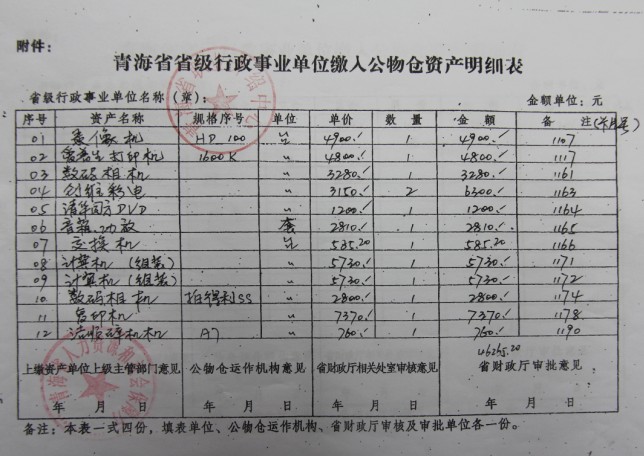 附件：
青海省省级行政事业单位缴入公物仓资产明细表
省级行政事业单位名称（章）： 金额单位：元
序号 资产名称 规格序号 单位 单价 数量 金额 备注
01 录像机 HD 100 4900 1 4900 1107
02 打印机 1600K 〃 4800 1 4800 1117
03 数码相机 〃 3280 1 3280 1161
04 创维彩电 〃 3150 2 6300 1163
05 清华同方DVD 〃 1200 1 1200 1164
06 音箱功放 套 2810 1 2810 1165
07 交换机 585.20 1 585.20 1166
08 计算机（组装） 〃 5730 1 5730 1171
09 计算机（组装） 〃 5730 1 5730 1172
10 数码相机 〃 2800 1 2800 1174
11 复印机 〃 7370 1 7370 1178
12 机 A7 〃 760 1 760 1190
46265.20
上缴资产单位上级主管部门意见 公物仓运作机构意见 省财政厅相关处室审核意见 省财政厅审批意见
年 月 日 年 月 日 年 月 日 年 月 日
备注：本表一式四份，填表单位、公物仓运作机构、省财政厅审核及审批单位各一份。